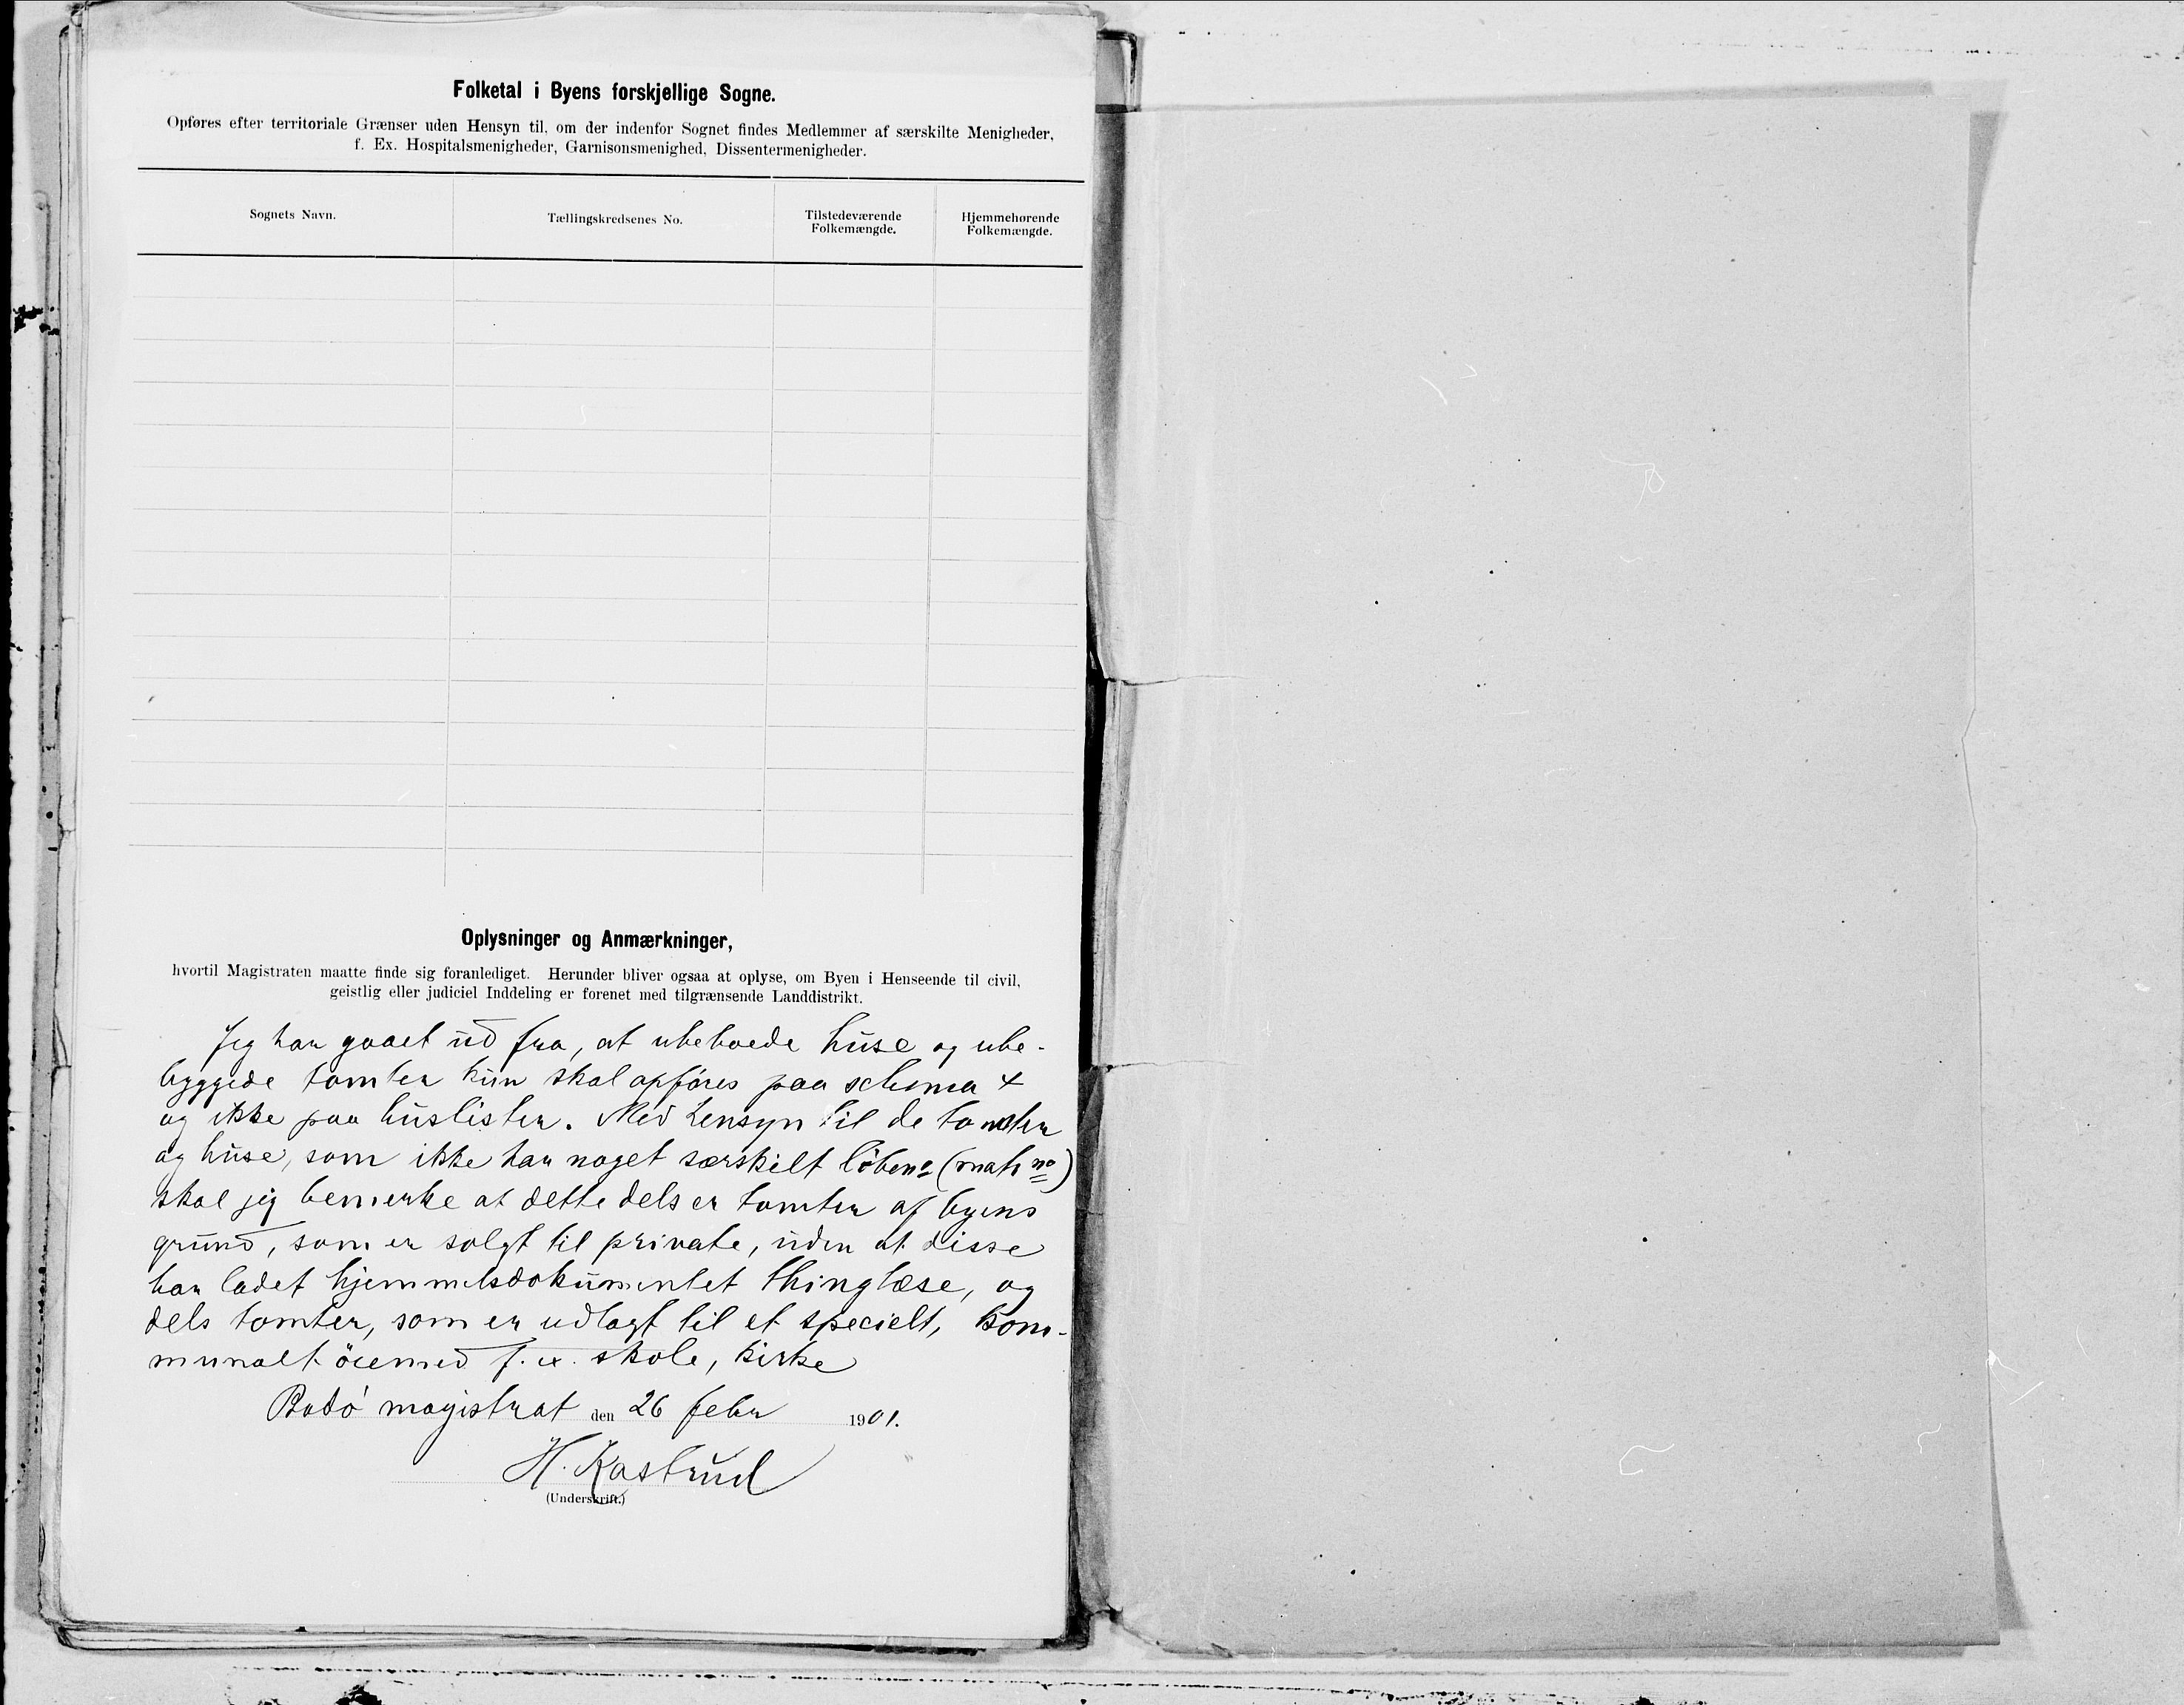 Folketal i Byens forskjellige Sogne.
Opføres efter territoriale Grænser uden Hensyn til, om der indenfor Sognet findes Medlemmer af særskilte Menigheder,
f. Ex. Hospitalsmenigheder, Garnisonsmenighed, Dissentermenigheder.
Sognets Navn.
Tællingskredsenes No.
Tilstedeværende
Folkemængde.
Hjemmehørende
Folkemængde.
Oplysninger og Anmærkninger,
hvortil Magistraten maatte finde sig foranlediget. Herunder bliver ogsaa at oplyse, om Byen i Henseende til civil,
geistlig eller judiciel Inddeling er forenet med tilgrænsende Landdistrikt.
Jeg har gaaet ud fra, at ubeboede huse og ube-
byggede tomter kun skal opføres paa schema 4
og ikke paa huslister. Med hensyn til de tomter
og huse, som ikke har noget særskilt löbeno (matr no)
skal jeg bemerke at dette dels er tomter af byens
grund, som er solgt til private, uden at disse
har ladet hjemmelsdokumentet thinglæse, og
dels tomter, som er udlagt til et specielt, kom-
munalt öiemed f. ex. skole, kirke
Bodö magistrat den 26 febr 1901.
H. Kastrud
(Underskrift.)